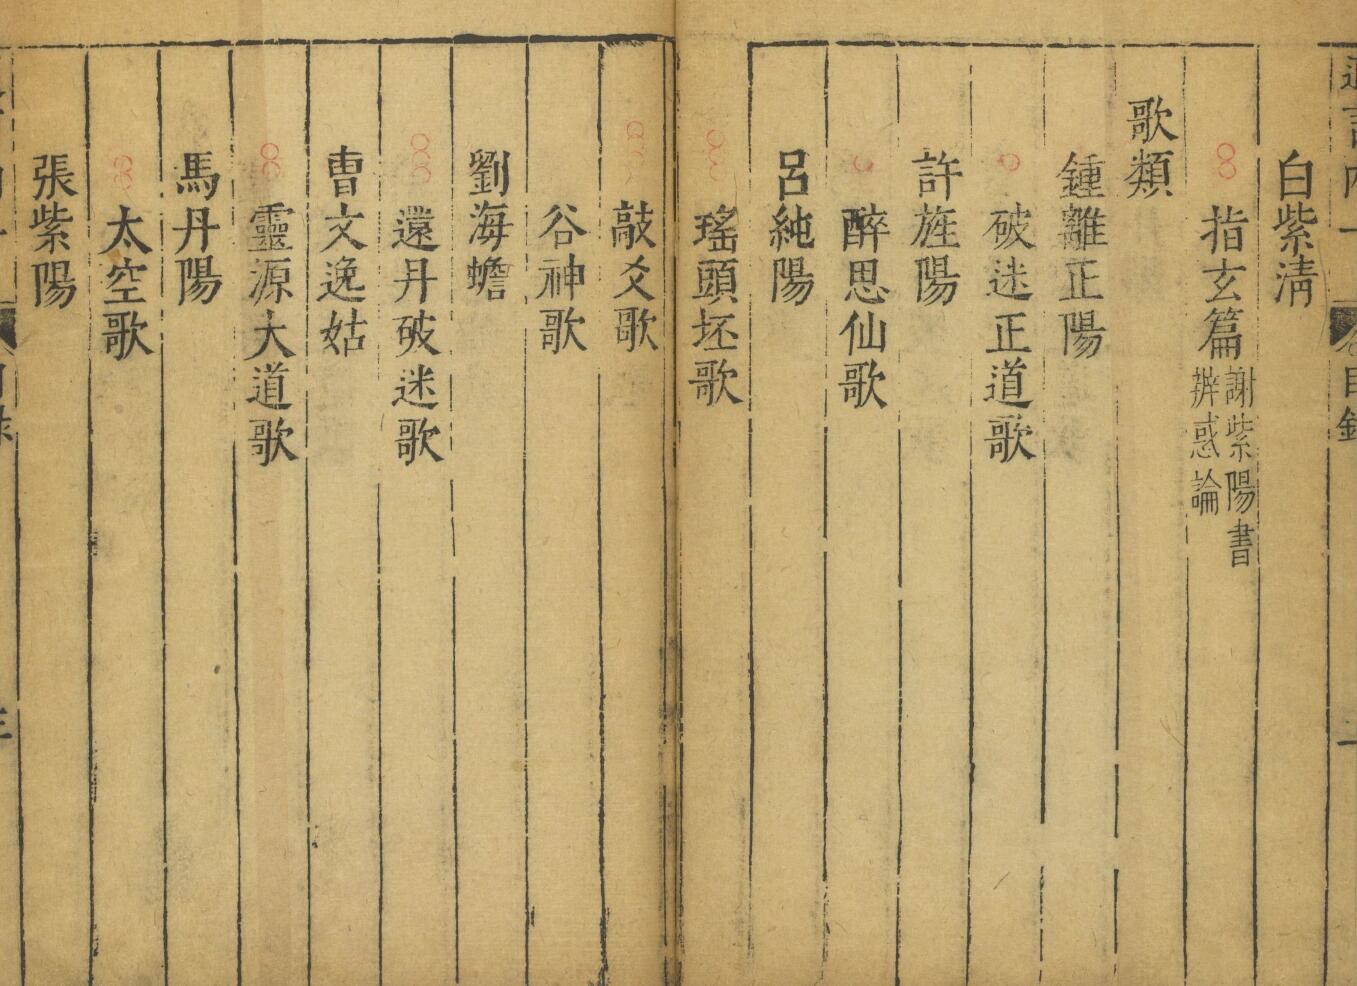 白紫淸
指玄篇 謝紫陽書 辨惑論
歌類
鍾離正陽
破迷正道歌
許旌陽
醉思仙歌
呂純陽
瑤頭坯歌
敲爻歌
谷神歌
劉海蟾
還丹破迷歌
曺文逸姑
靈源大道歌
馬丹陽
太空歌
張紫陽